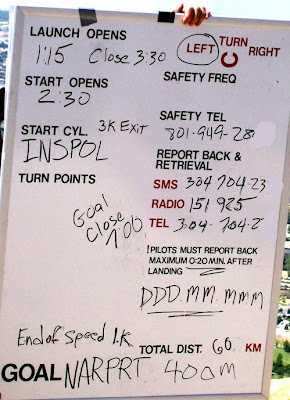 LAUNCH OPENS
1:15 Close 3:30
LEFT TURN RIGHT
START OPENS
2:30
SAFETY FREQ
SAFETY TEL
801-949-28
START CYL. 3K EXIT
INSPOL
REPORT BACK & RETRIEVAL
SMS 304 704-23
RADIO 151 925
TEL 304-704-2
TURN POINTS
Goal
Close
7:00
!PILOTS MUST REPORT BACK
MAXIMUM 0:20 MIN. AFTER
LANDING
DDD.MM.MMM
End of Speed 1K
TOTAL DIST. 60 KM
GOAL NARPRT 400m